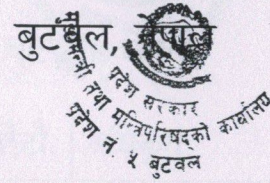 बुटवल, नेपाल
प्रदेश सरकार
मुख्यमन्त्री तथा मन्त्रिपरिषद्को कार्यालय
प्रदेश नं. ५ बुटवल